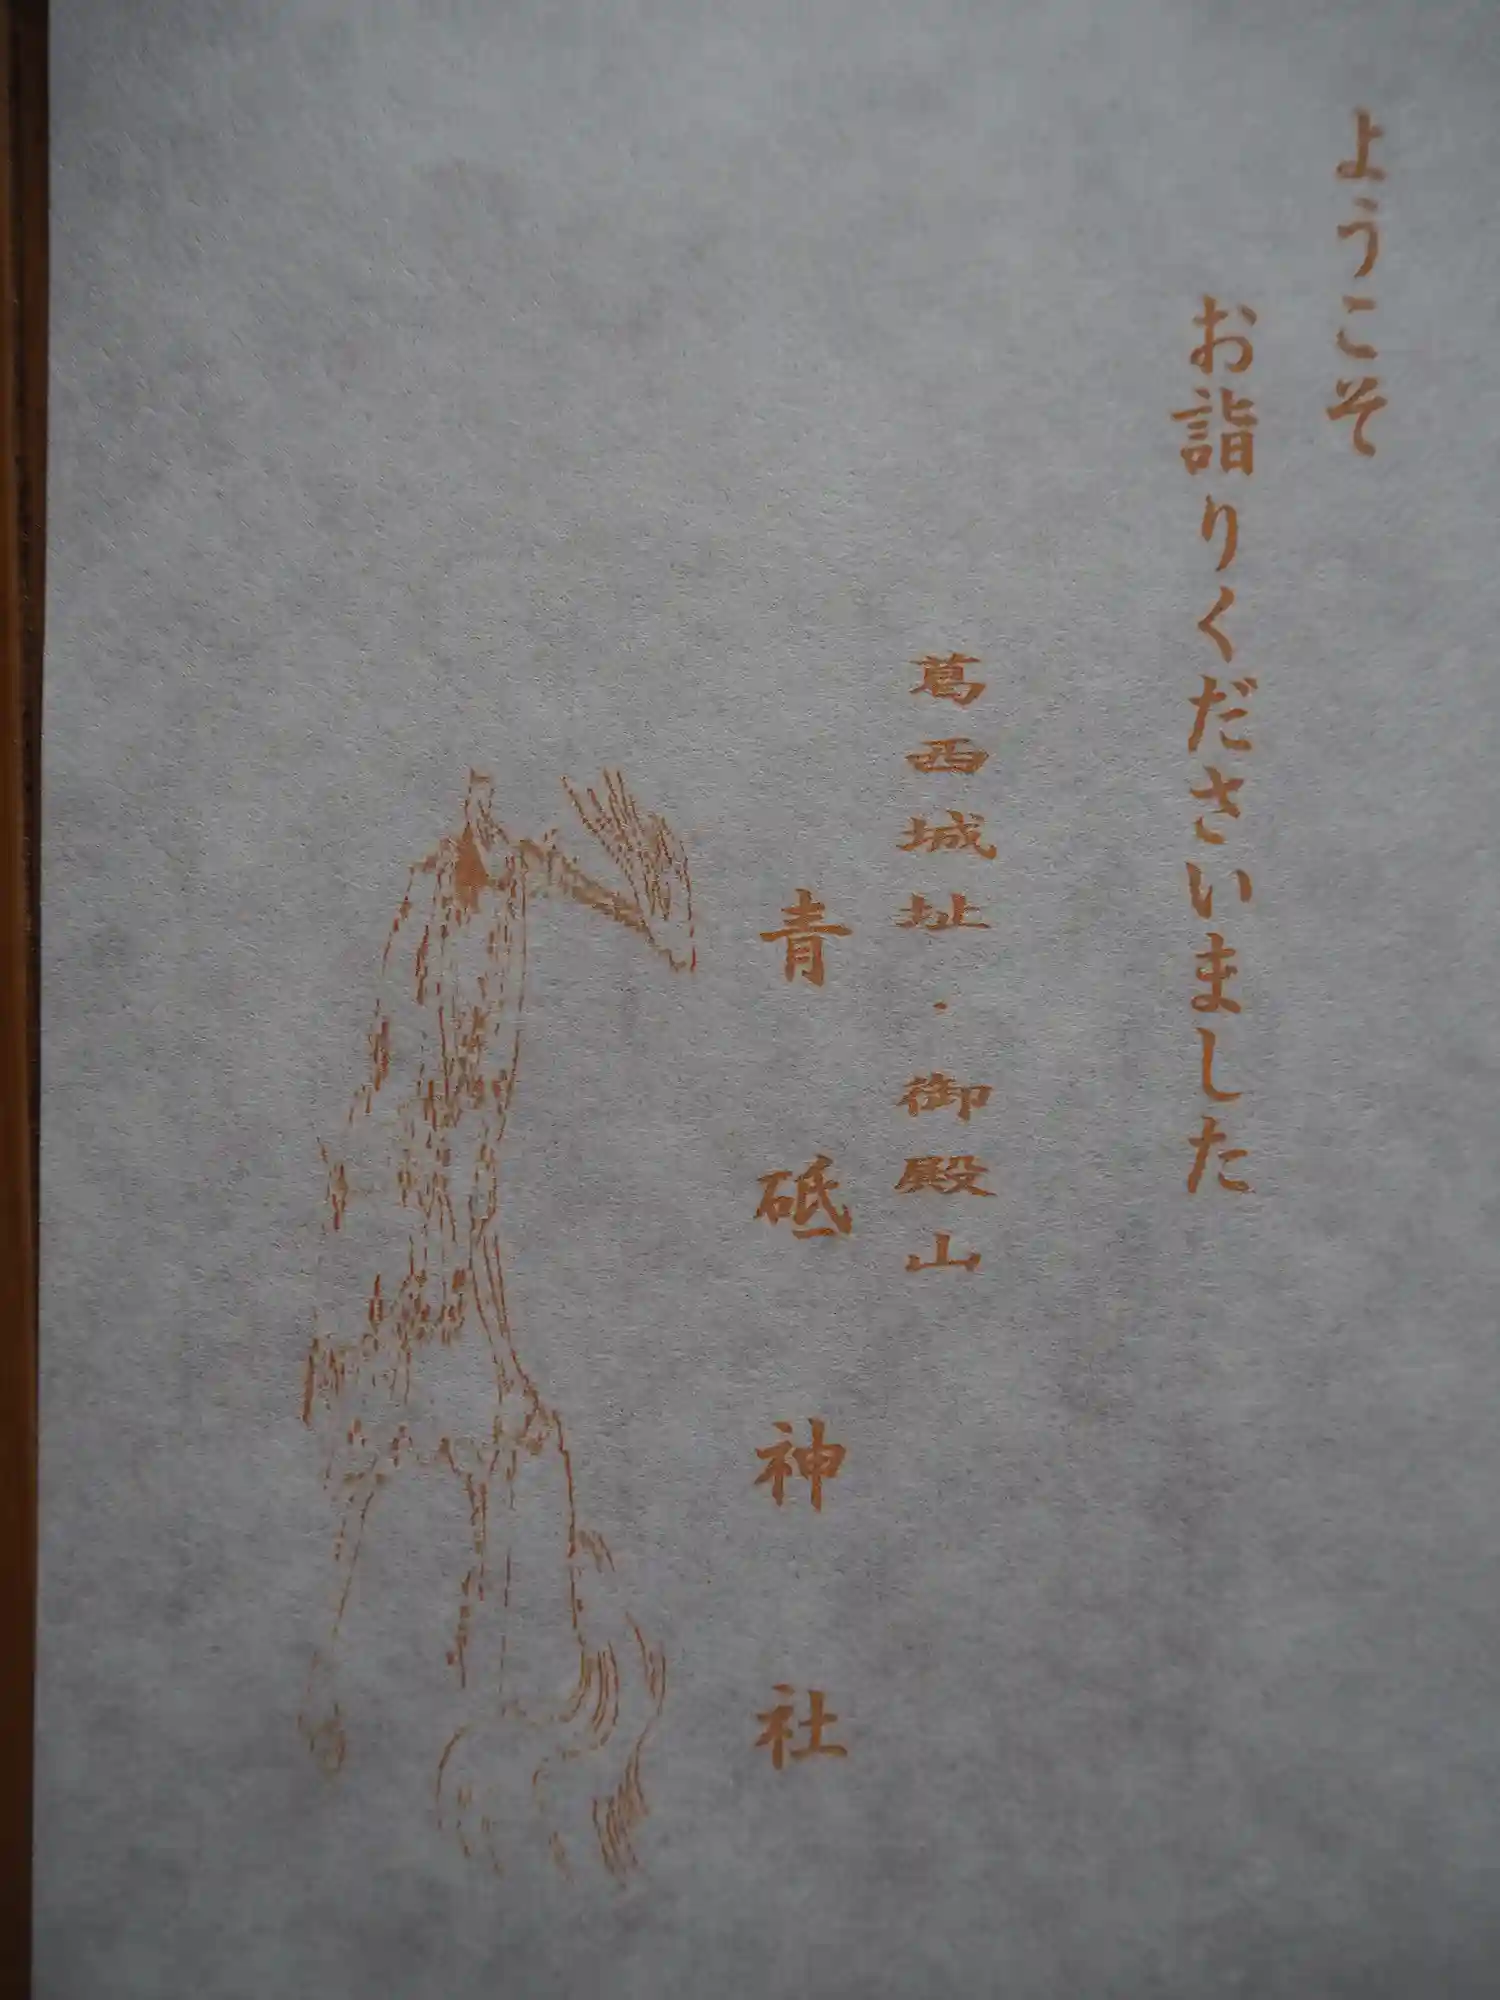 ようこそ
お詣りくださいました
葛西城址・御殿山
青砥神社